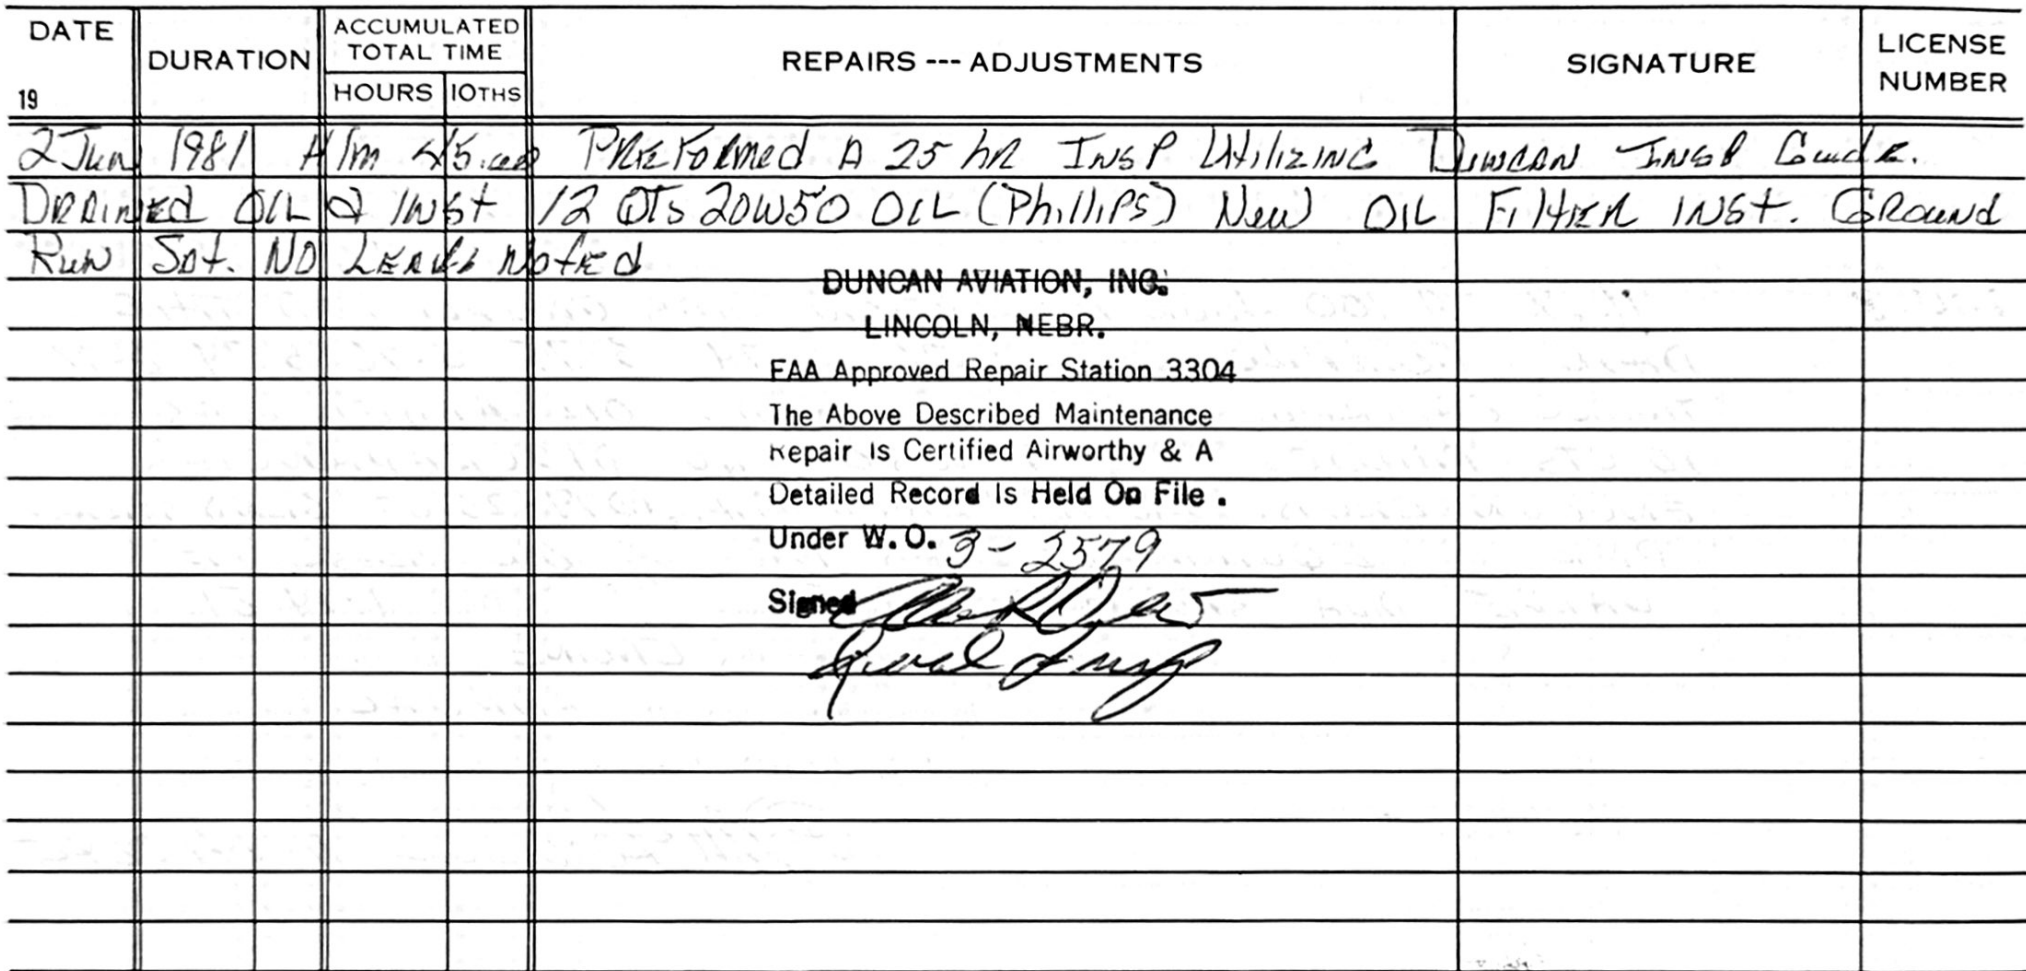 DATE
19
DURATION
ACCUMULATED
TOTAL TIME
HOURS
10THS
REPAIRS --- ADJUSTMENTS
SIGNATURE
LICENSE
NUMBER
2 Jun 1981 H/m PREFormed A 25 hR INSP UtilizING DUNCAN INSP Guide.
DRAINED OIL & INSt 12 QTs 20W50 OIL (PhilliPS) New OIL FiltER INSt. GRound
RuN Sat. NO LEAKS NotEd
DUNCAN AVIATION, INC.
LINCOLN, NEBR.
FAA Approved Repair Station 3304
The Above Described Maintenance
Repair Is Certified Airworthy & A
Detailed Record Is Held On File .
Under W.O. 3-2579
Signed